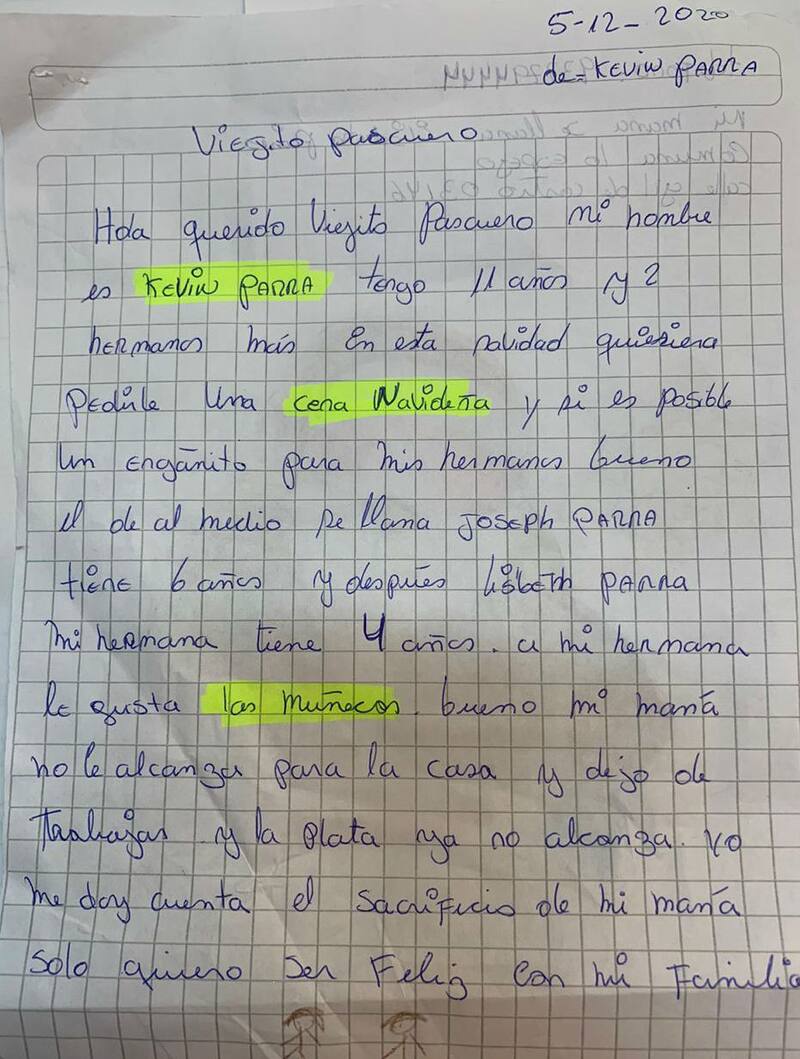 5-12-2020
de= KEVIN PARRA
Viegito pascuero
Hola querido Viegito Pascuero mi nombre
es KEVIN PARRA tengo 11 años y 2
hermanos más En esta navidad quiesiera
pedirle Una cena Navideña y si es posible
Un engañito para mis hermanos bueno
el de al medio se llama JOSEPH PARRA
tiene 6 años y después Lisbeth PARRA
mi hermana tiene 4 años. a mi hermana
le gusta las muñecas. bueno mi mamá
no le alcanza para la casa y dejo de
Trabajar y la plata ya no alcanza. yo
me doy cuenta el sacrificio de mi mamá
solo quiero ser Feliz con mi Familia